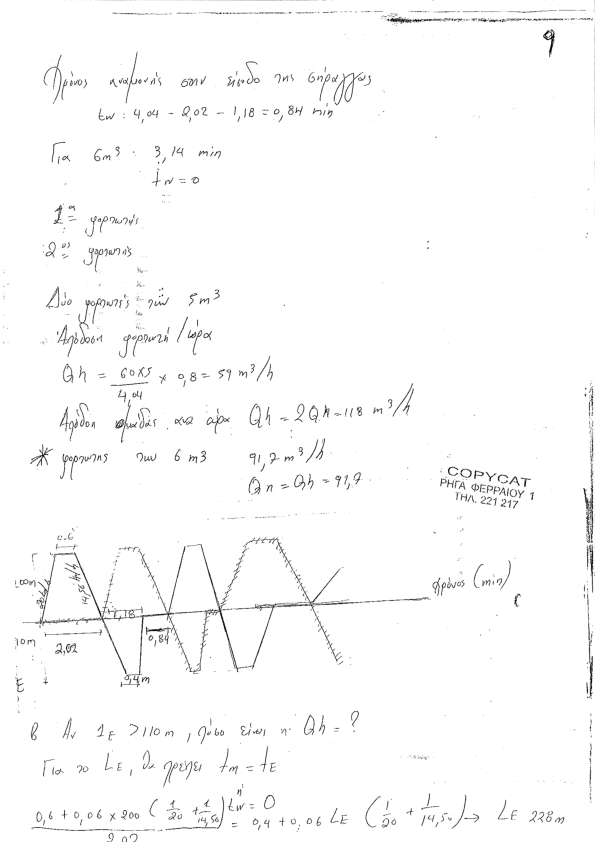 9
Χρόνος αναμονής στην είσοδο της σήραγγας
tw : 4,04 - 2,02 - 1,18 = 0,84 min
Για 6m³ : 3,14 min
tw = 0
1ος φορτωτής
2ος φορτωτής
Δύο φορτωτές των 5m³
Απόδοση φορτωτή / ώρα
Qh = 60x5/4,04 x 0,8 = 59 m³/h
Απόδοση ομάδας ανα ώρα Qh = 2Qh = 118 m³/h
* φορτωτής των 6 m3 91,7 m³/h
Qn = Qh = 91,7
COPYCAT
ΡΗΓΑ ΦΕΡΡΑΙΟΥ 1
ΤΗΛ. 221 217
0.6
Χρόνος (min)
1,18
0,84
2,02
0,4 m
B Αν 1E > 110 m, πόσο είναι η Qh = ?
Για το LE, θα πρέπει tm = tE
ή tw = 0
0,6 + 0,06 x 200 (1/20 + 1/14,50) / 2,02 = 0,4 + 0,06 LE (1/20 + 1/14,50) → LE 228m